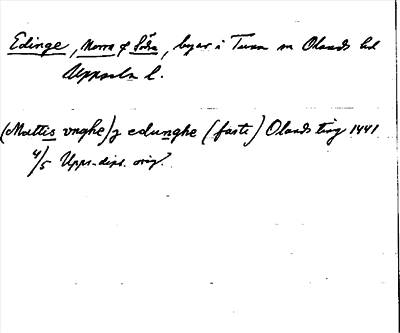 Edinge, Norra & Södra, byar i Tuna sn Olands hd
Uppsala l.
(Mattis vnghe) j edunghe (faste) Olands ting 1441
4/5 Upps. dipl. orig.